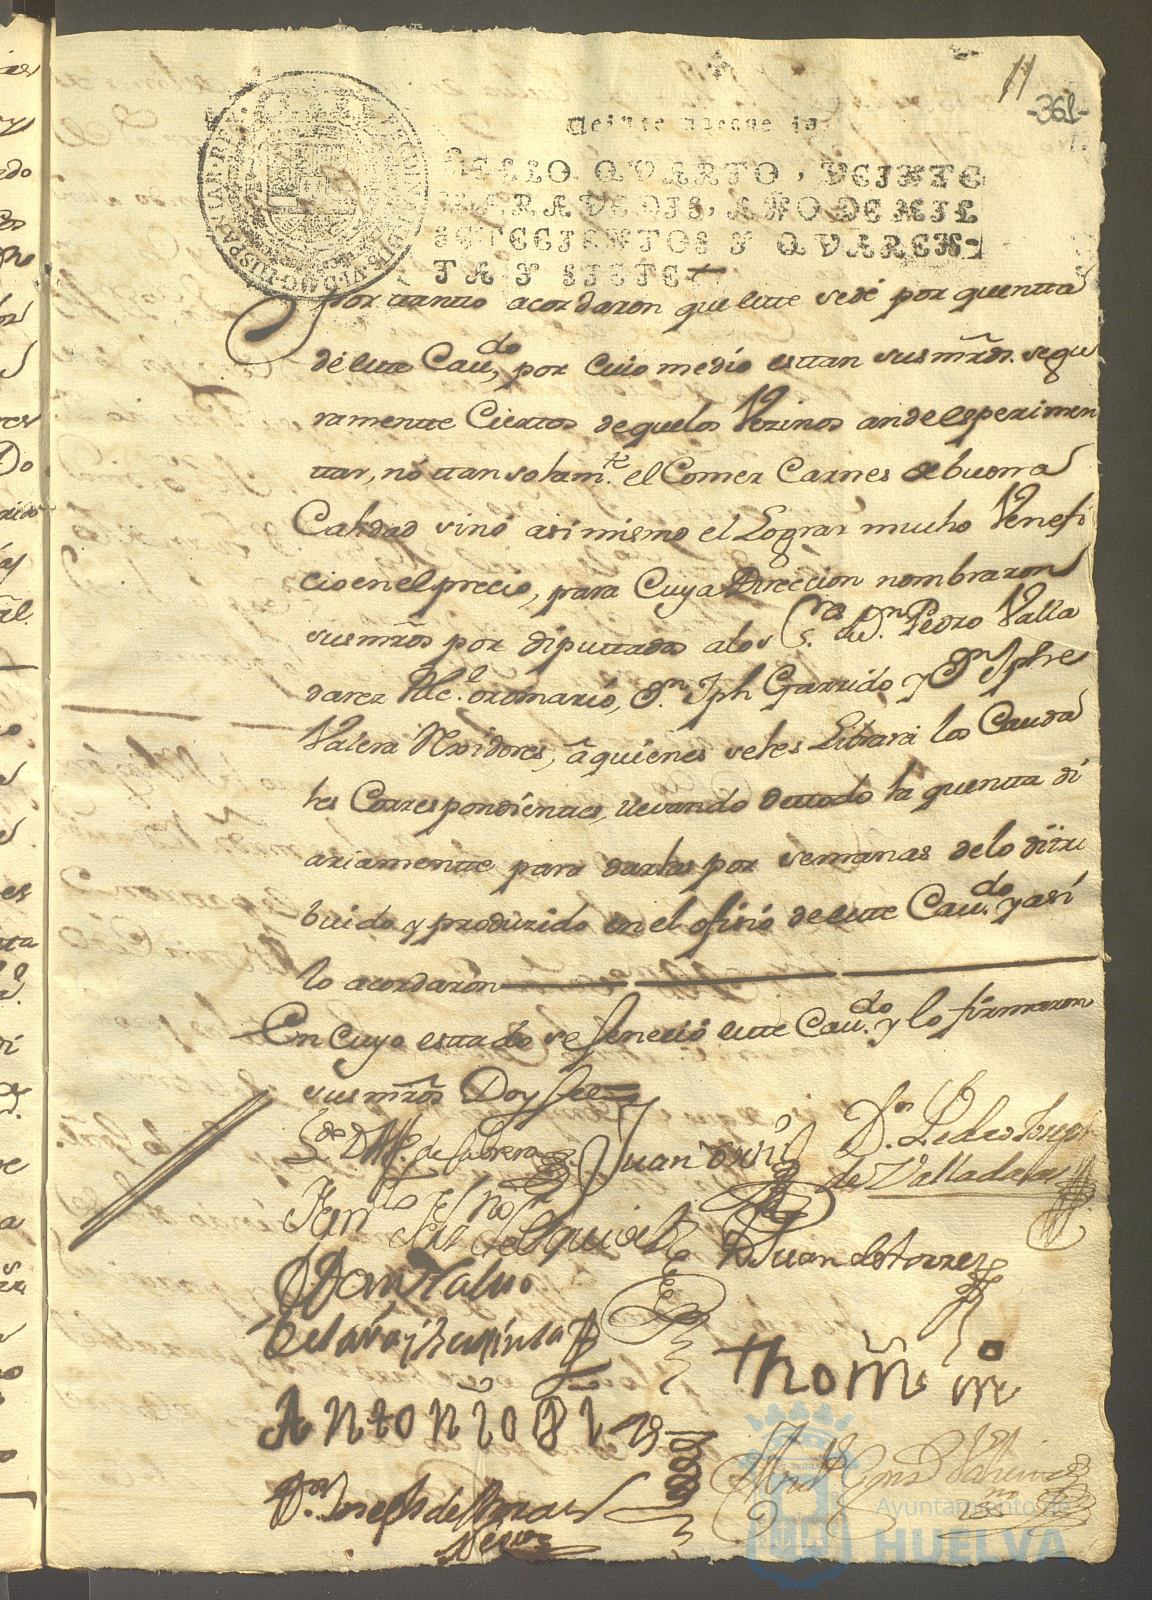 11
-361-
SELLO QVARTO, VEINTE
MARAVEDIS, AÑO DE MIL
SETECIENTOS Y QVAREN-
TA Y SIETE
por ttantto acordaron que estte se dé por quentta
de estte Cauᵈᵒ, por cuio medio esttan sus mr̃ds. segu
ramentte Ciertos de que los Vezinos an de esperimen
ttar, nó ttan solamᵗᵉ. el Comer Carnes de buena
Calidad sinó asimismo el Lograr mucho Venefi
cio en el precio, para Cuya Direccion nombraron
sus mr̃ds por diputtados a los Sʳᵉˢ. Dⁿ. Pedro Valla
darez Alcᵉ. ordinarió, Dⁿ. Jph Garrido y Dⁿ Jphe
Valera Rexidores, á quienes se les Librará los Cauda
les Correspondienttes, llevando de ttodo la quentta di
ariamentte para darlas por semanas de lo distri
buido y produzido en el ofizió de estte Cauᵈᵒ. y así
lo acordarón
En Cuyo esttado se fenezió estte Cauᵈᵒ. y lo firmaron
sus mr̃ds Doy fee
de Cabrera
Juan
Dⁿ. Pedro Joseph
de Valladares
de Esquivel
Juan de torrez
Antonio
thom
Dⁿ. Joseph de
Ayuntamiento de
HUELVA